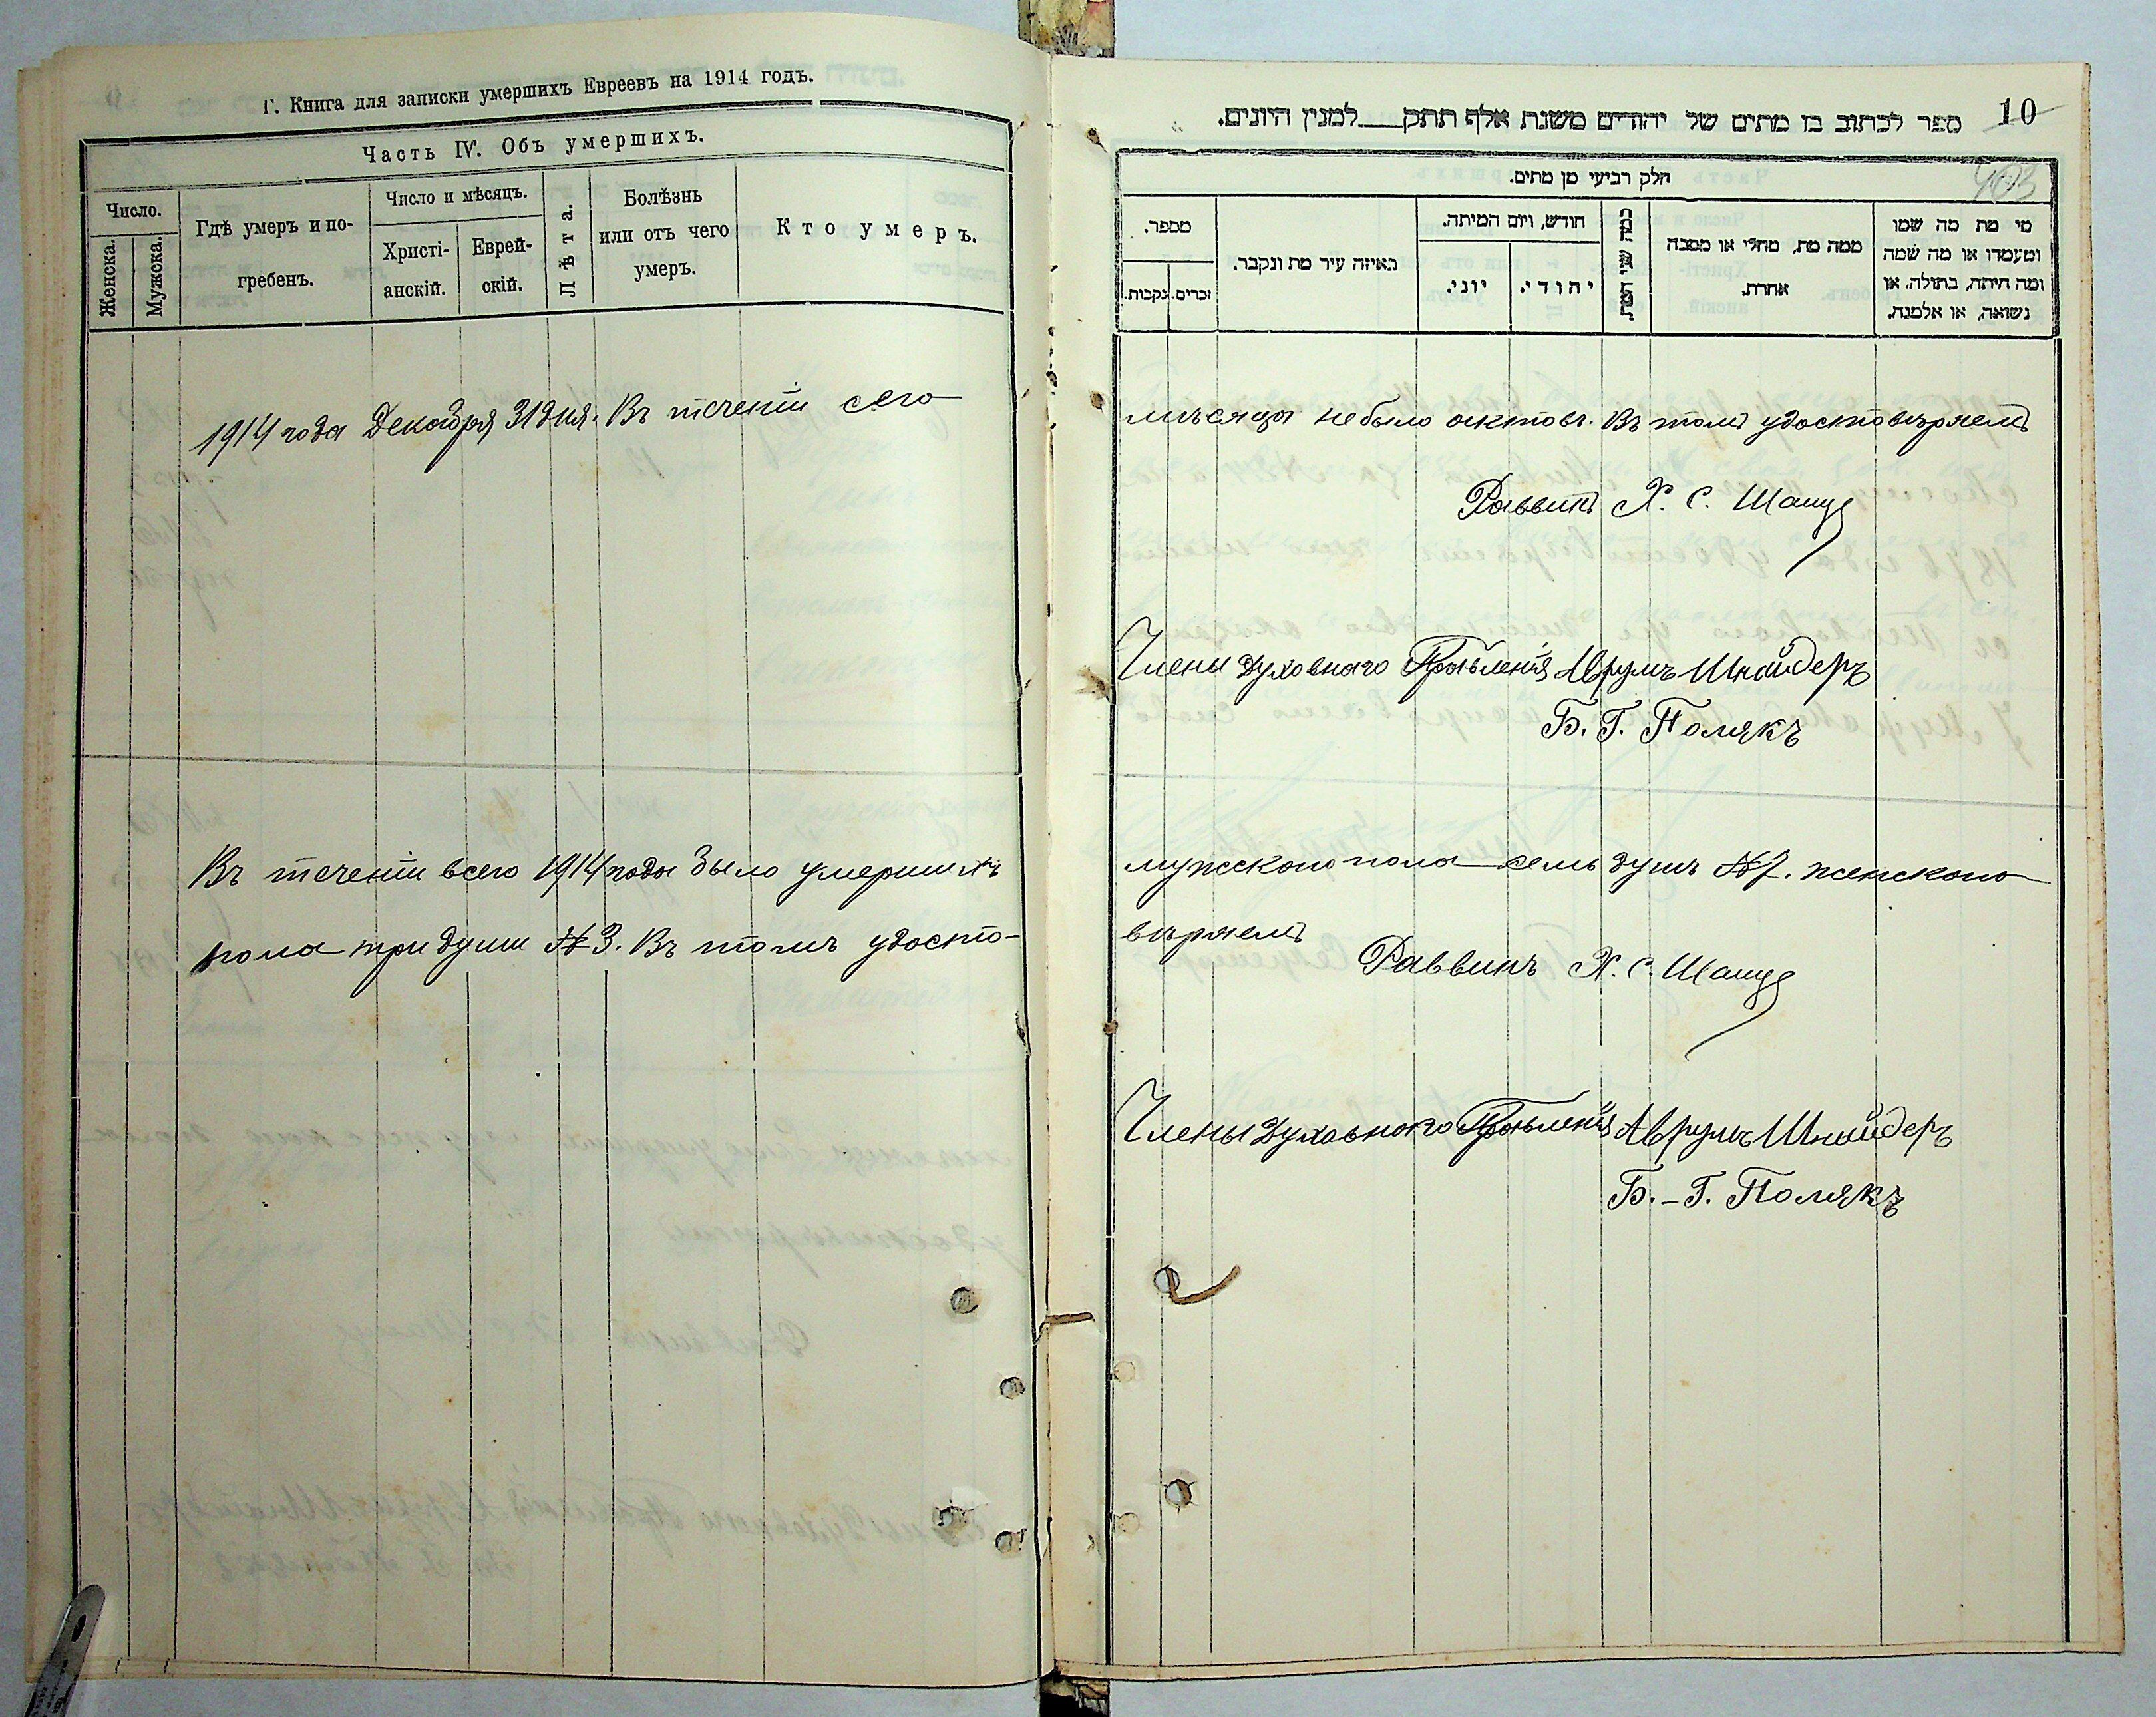 Г. Книга для записки умершихъ Евреевъ на 1914 годъ.
Часть IV. Объ умершихъ.
Число.
Женска.
Мужска.
Гдѣ умеръ и по-
гребенъ.
Число и мѣсяцъ.
Христі-
анскій.
Еврей-
скій.
Лѣта.
Болѣзнь
или отъ чего
умеръ.
Кто умеръ.
1914 года Декабря 31 дня. Въ теченіи сего
Въ теченіи всего 1914 года было умершихъ
пола три души № 3. Въ томъ удосто-
10
ספר לכתוב בו מתים של יהודים משנת אלף תתק___למנין היונים.
403
חלק רביעי מן מתים.
מספר.
זכרים.
נקבות.
באיזה עיר מת ונקבר.
חודש, ויום המיתה.
יוני.
יהודי.
כמה שני המת.
ממה מת, מחלי או מסבה
אחרת.
מי מת מה שמו
ומעמדו או מה שמה
ומה היתה, בתולה, או
נשואה, או אלמנה.
мѣсяца не было актовъ. Въ томъ удостовѣряемъ
Раввинъ Х. С. Шацъ
Члены Духовнаго Правленія Аврумъ Шнайдеръ
Б. Г. Полякъ
мужского пола семь душъ № 7. женского
вѣряемъ
Раввинъ Х. С. Шацъ
Члены Духовного Правленія Аврумъ Шнайдеръ
Б.-Г. Полякъ